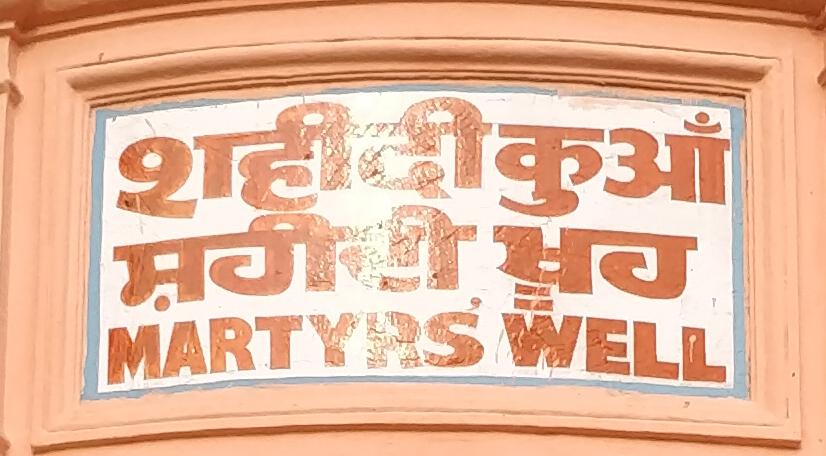 शहीदी कुआँ
ਸ਼ਹੀਦੀ ਖੂਹ
MARTYRS' WELL